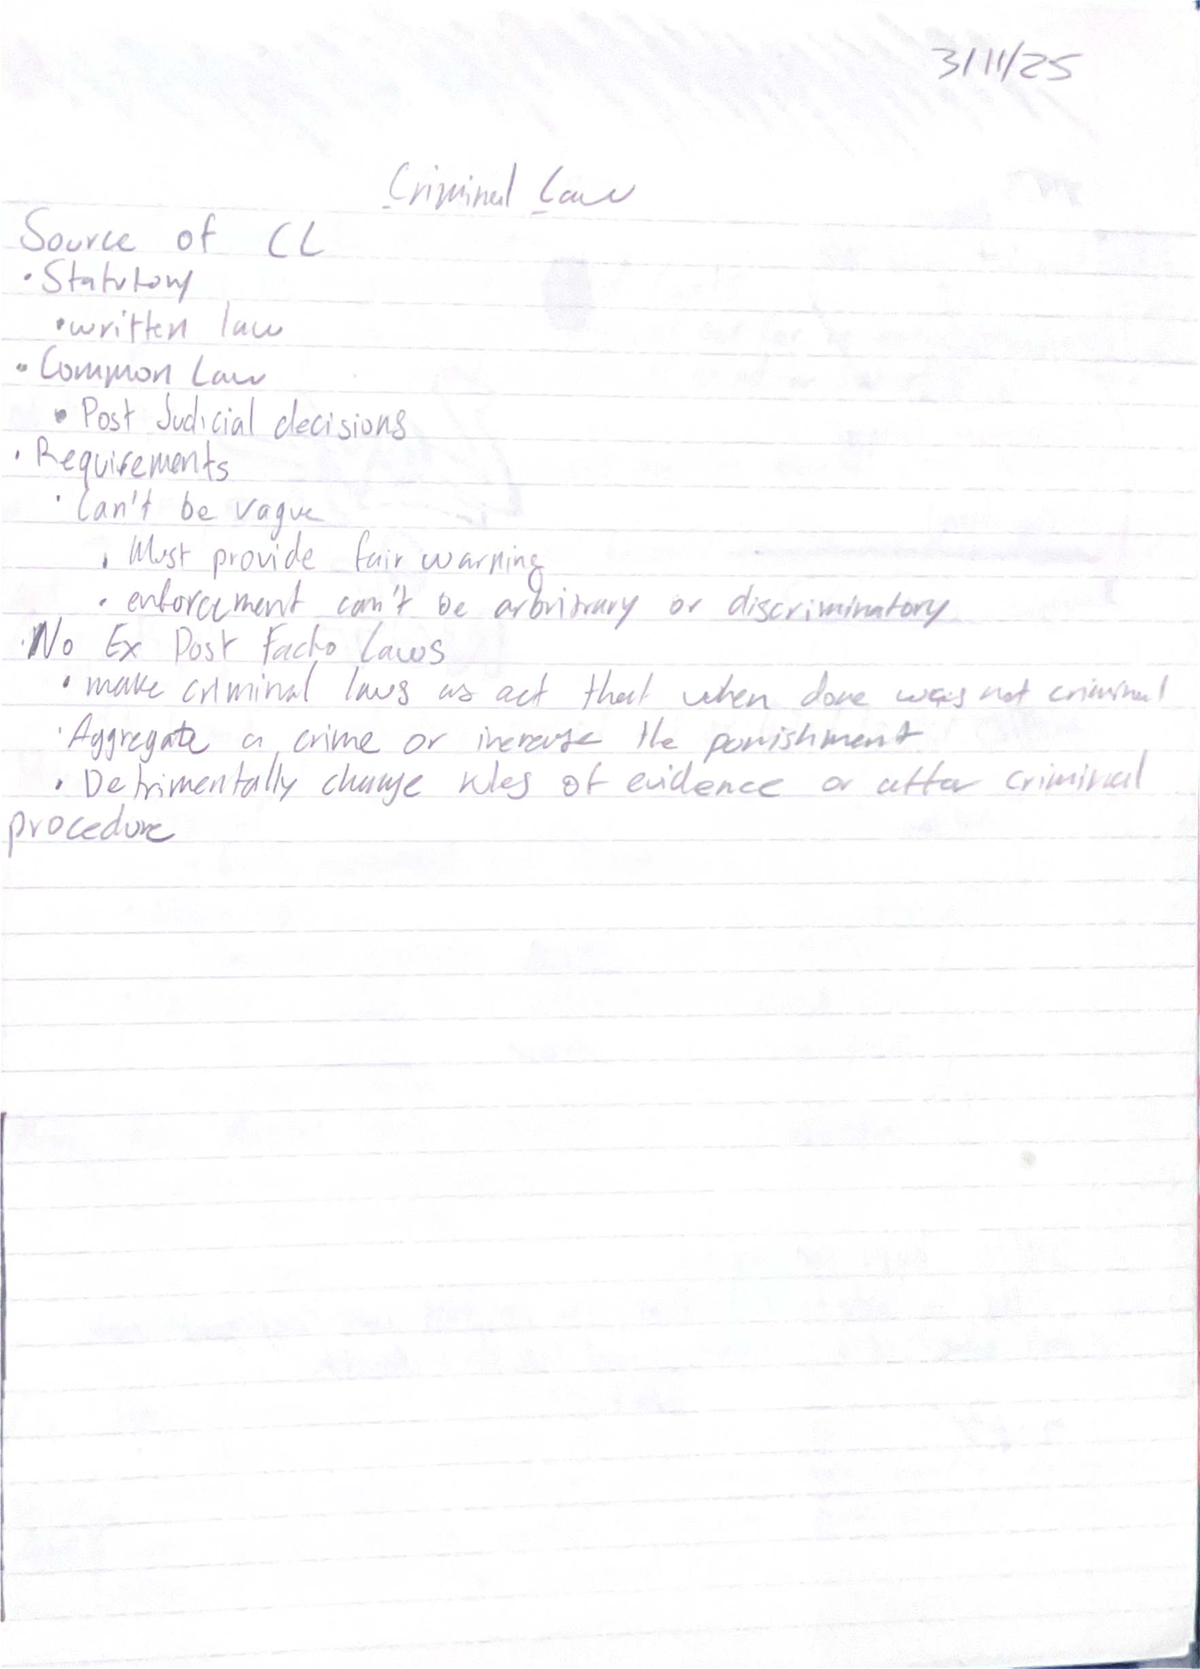 3/11/25
Criminal Law
Source of CL
• Statutory
• written law
• Common Law
• Post Judicial decisions
• Requirements
• Can't be vague
• Must provide fair warning
• enforcement can't be arbritrary or discriminatory
• No Ex Post Facto Laws
• make criminal laws as act that when done was not criminal
• Aggregate a crime or increase the punishment
• Detrimentally change rules of evidence or after criminal
procedure